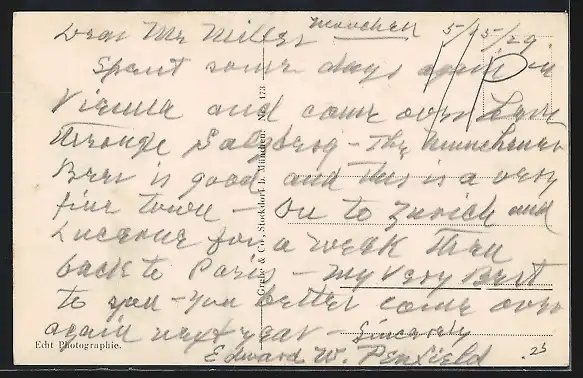 Munchen 5/15/29.
Dear Mr Miller
Spent some days again in
Vienna and came over here
through Salzberg - The Munchener
Beer is good and this is a very
fine town - On to Zurich and
Lucerne for a week then
back to Paris - My Very Best
to you - you better come over
again next year - Sincerely
Edward W. Penfield
Echt Photographie.
.25
Grehe & Co., Stockdorf b. München. No. 173